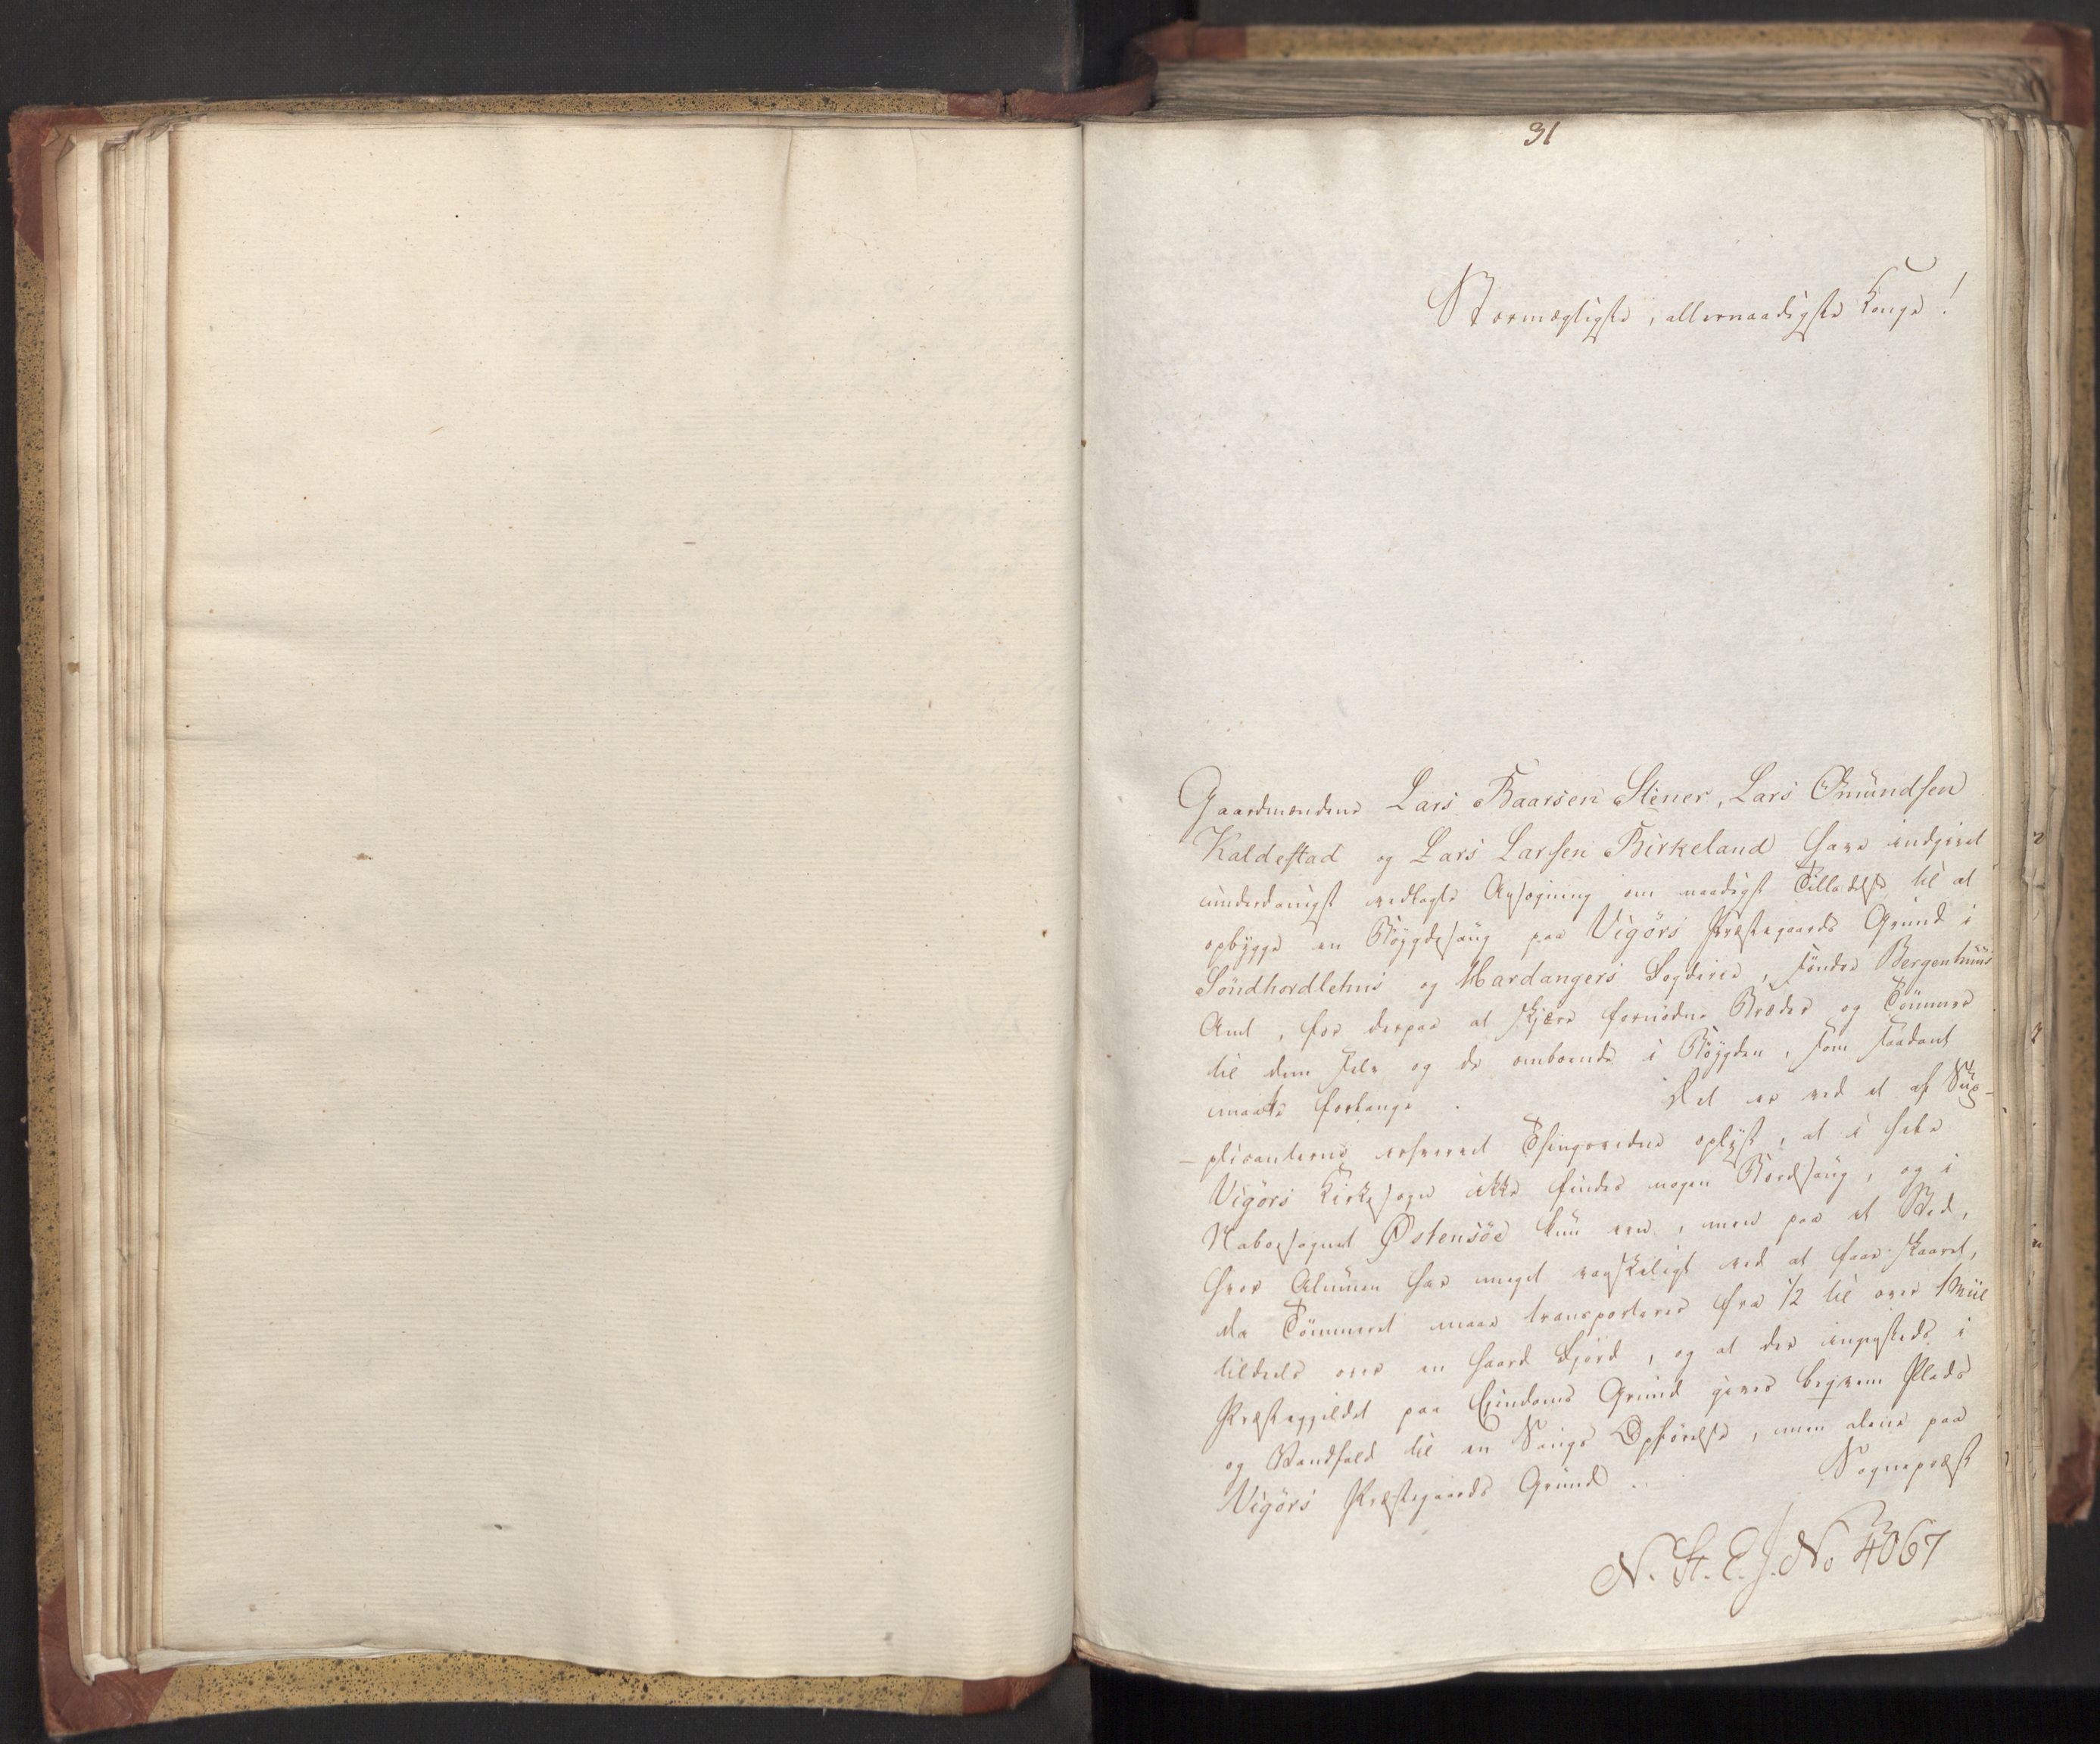 31
Stormægtigste, allernaadigste Konge!
Gaardmændene Lars Baarsen Stener, Lars Omundsen
Kaldestad og Lars Larsen Birkeland have indgivet
underdanigst vedlagte Ansøgning om naadigst Tilladelse til at
opbygge en Bøygdesaug paa Vigørs Præstegaards Grund i
Søndhordlehns og Hardangers Fogderie, søndre Bergenhuus
Amt, for derpaa at skjære fornødne Bræder og Tømmer
til dem selv og de omboende i Bøygden, som saadant
maatte forlange. Det er ved et af Sup-
-plicanterne erhvervet Thingsvidne oplyst, at i hele
Vigørs Kirkesogn ikke findes nogen Bordsaug, og i
Nabosognet Østensøe kun een, men paa et Sted,
hvor Almuen har meget vanskeligt ved at faae skaaret,
da Tømmeret maae transporteres fra 1/2 til over 1 Miil
tildeels over en haard Fjord, og at der ingensteds i
Præstegjeldet paa Eiendoms Grund gives beqvem Plads
og Vandfald til en Saugs Opførelse, men alene paa
Vigørs Præstegaards Grund. Sognepræst
N. St. E. J. No 4067